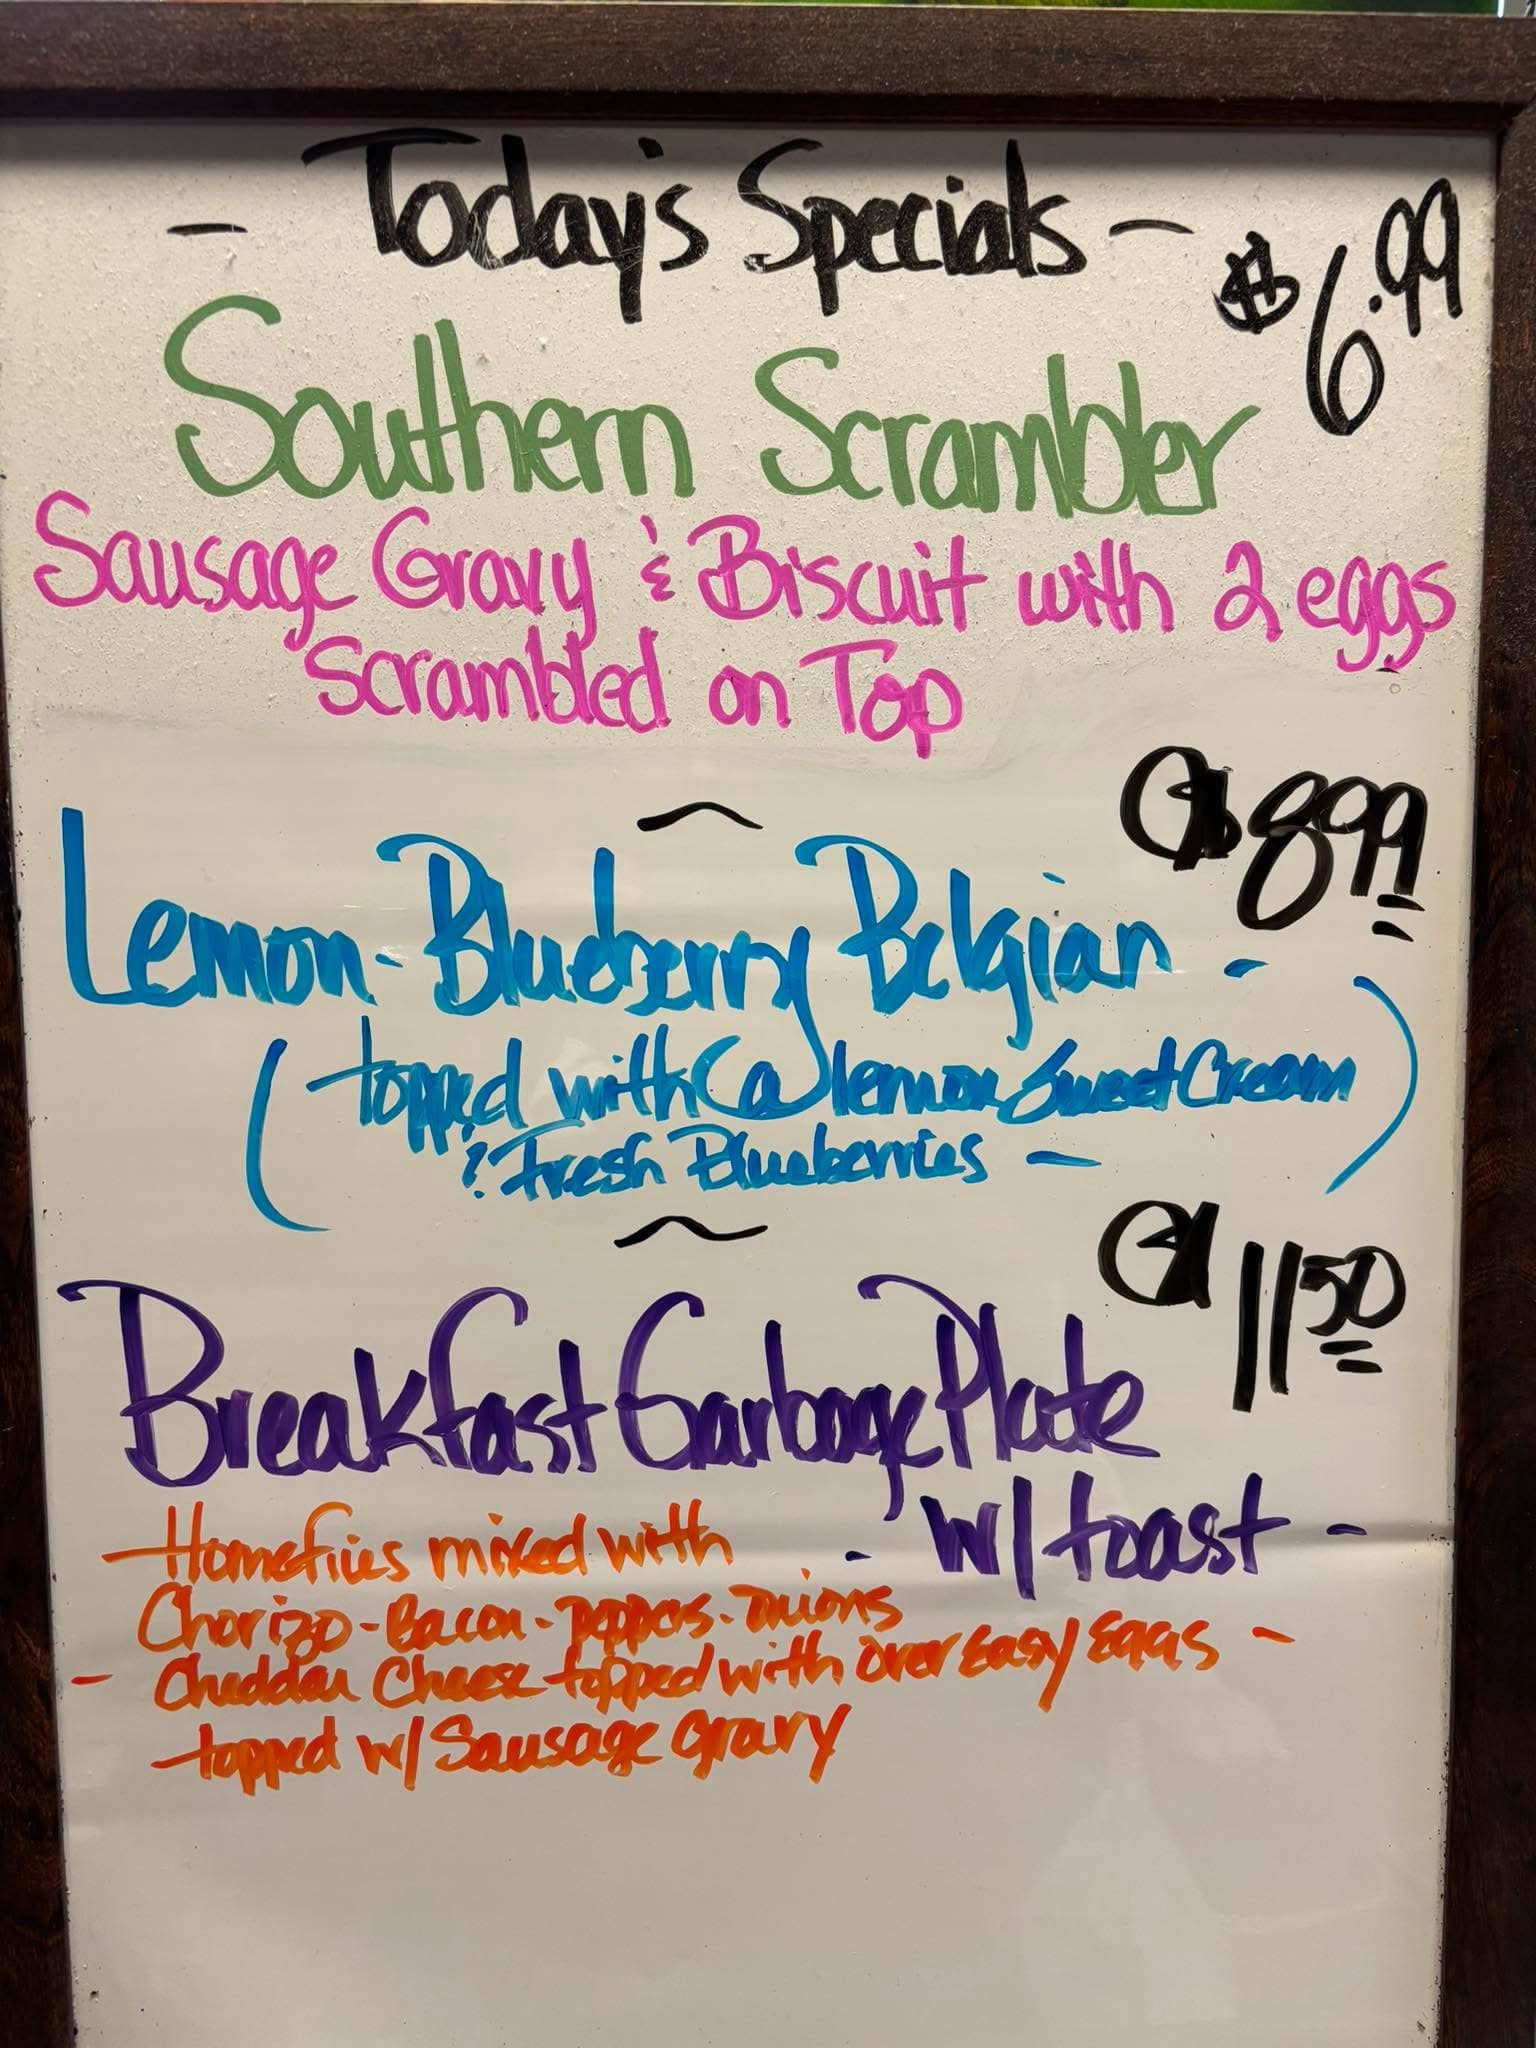 - Today's Specials -
$6.99
Southern Scrambler
Sausage Gravy & Biscuit with 2 eggs
Scrambled on Top
$8.99
Lemon-Blueberry Belgian -
(topped with a lemon Sweet Cream
& Fresh Blueberries -)
$11.50
Breakfast Garbage Plate
- w/ toast -
Homefries mixed with
Chorizo - Bacon - Peppers - onions
- Cheddar Cheese topped with over Easy Eggs -
topped w/ Sausage gravy